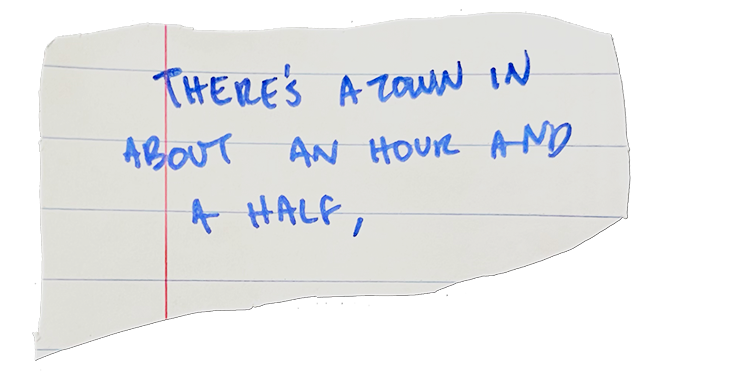 THERE'S A TOWN IN
ABOUT AN HOUR AND
A HALF,